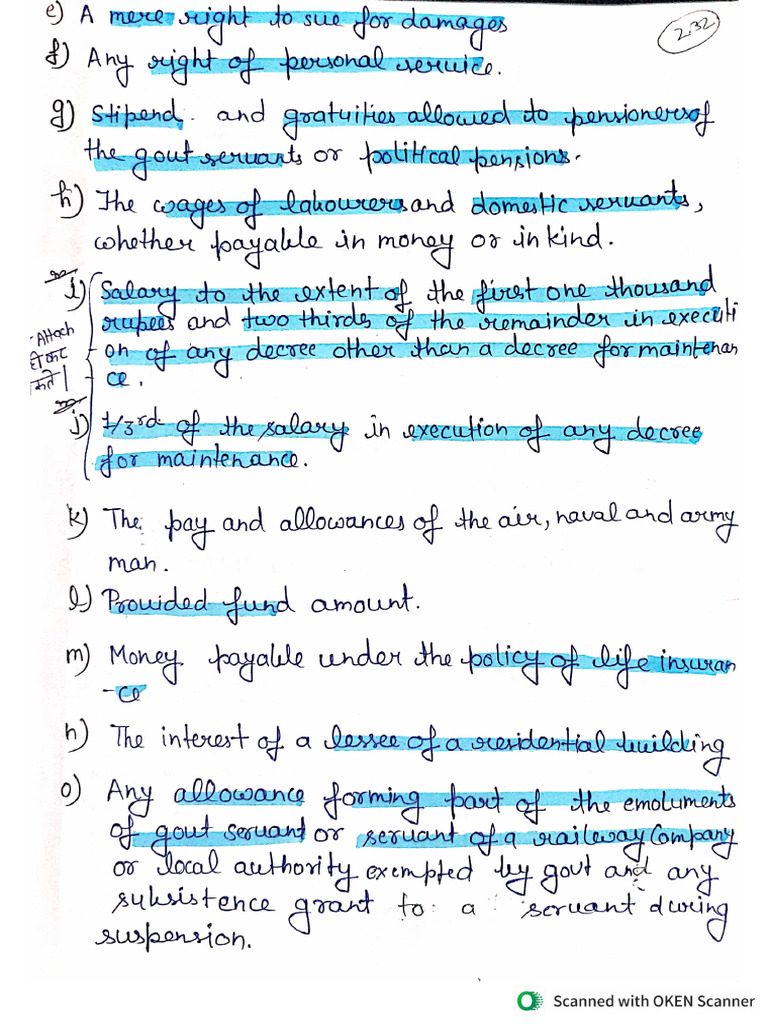 e) A mere right to sue for damages
232
f) Any right of personal service.
g) Stipend and gratuities allowed to pensioners of
the govt servants or political pensions.
h) The wages of labourers and domestic servants,
whether payable in money or in kind.
i) Salary to the extent of the first one thousand
rupees and two thirds of the remainder in executi
on of any decree other than a decree for maintenan
ce.
- Attach
j) 1/3rd of the salary in execution of any decree
for maintenance.
k) The pay and allowances of the air, naval and army
man.
l) Provided fund amount.
m) Money payable under the policy of life insuran
-ce
n) The interest of a lessee of a residential building
o) Any allowance forming part of the emoluments
of govt servant or servant of a railway company
or local authority exempted by govt and any
subsistence grant to a servant during
suspension.
Scanned with OKEN Scanner